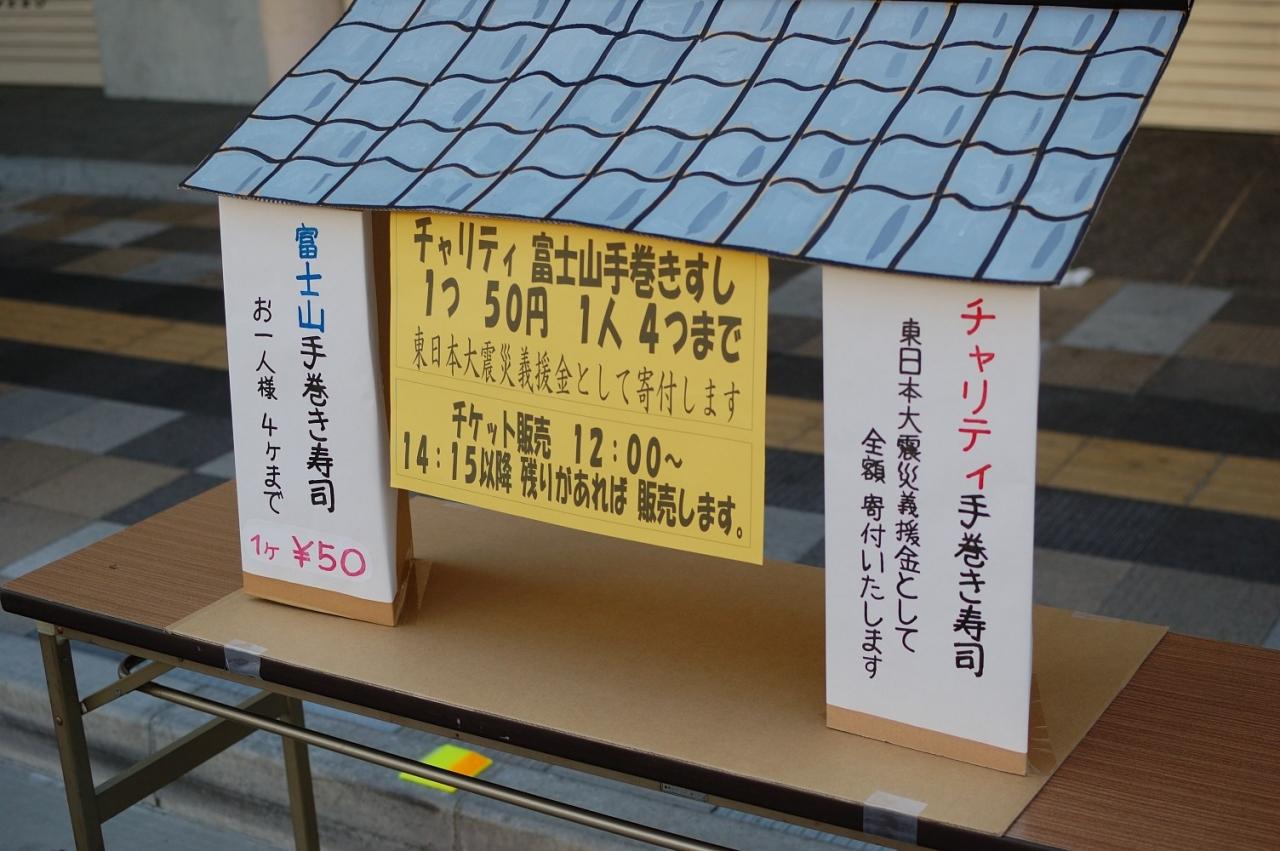 富士山手巻き寿司
お一人様 4ケまで
1ヶ ¥50
チャリティ 富士山手巻きすし
1つ 50円 1人 4つまで
東日本大震災義援金として寄付します
チケット販売 12:00～
14:15以降 残りがあれば 販売します。
チャリティ手巻き寿司
東日本大震災義援金として
全額 寄付いたします